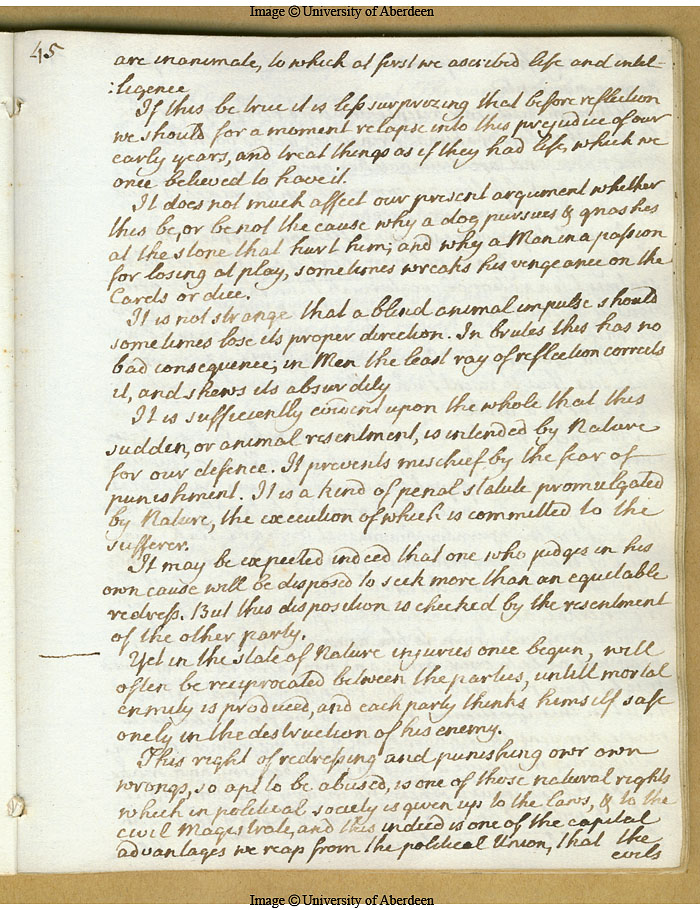 Image © University of Aberdeen
45
are inanimate, to which at first we ascribed life and intel-
:ligence
If this be true it is less surprizing that before reflection
we should for a moment relapse into this prejudice of our
early years, and treat things as if they had life, which we
once believed to have it.
It does not much affect our present argument whether
this be, or be not the cause why a dog pursues & gnashes
at the stone that hurt him; and why a Man in a passion
for losing at play, sometimes wreaks his vengeance on the
Cards or dice.
It is not strange that a blind animal impulse should
sometimes lose its proper direction. In brutes this has no
bad consequence; in Men the least ray of reflection corrects
it, and shews its absurdity
It is sufficiently evident upon the whole that this
sudden, or animal resentment, is intended by Nature
for our defence. It prevents mischief by the fear of
punishment. It is a kind of penal statute promulgated
by Nature, the execution of which is committed to the
sufferer.
It may be expected indeed that one who judges in his
own cause will be disposed to seek more than an equitable
redress. But this disposition is checked by the resentment
of the other party.
Yet in the state of Nature injuries once begun, will
often be reciprocated between the parties, untill mortal
enmity is produced, and each party thinks himself safe
onely in the destruction of his enemy.
This right of redressing and punishing over own
wrongs, so apt to be abused, is one of those natural rights
which in political society is given up to the laws, & to the
civil Magistrate, and this indeed is one of the capital
advantages we reap from the political Union, that the
evils
Image © University of Aberdeen